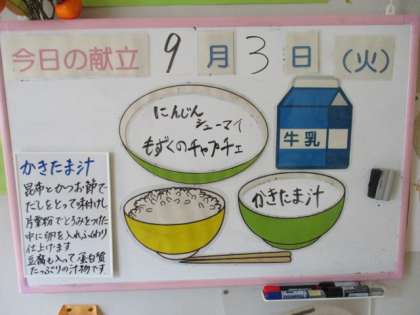 今日の献立 9月3日(火)
にんじん
シューマイ
もずくのチャプチェ
牛乳
かきたま汁
かきたま汁
昆布とかつお節で
だしをとって味付けし
片栗粉でとろみをつけた
中に卵を入れふんわり
仕上げます
豆腐も入って蛋白質
たっぷりの汁物です